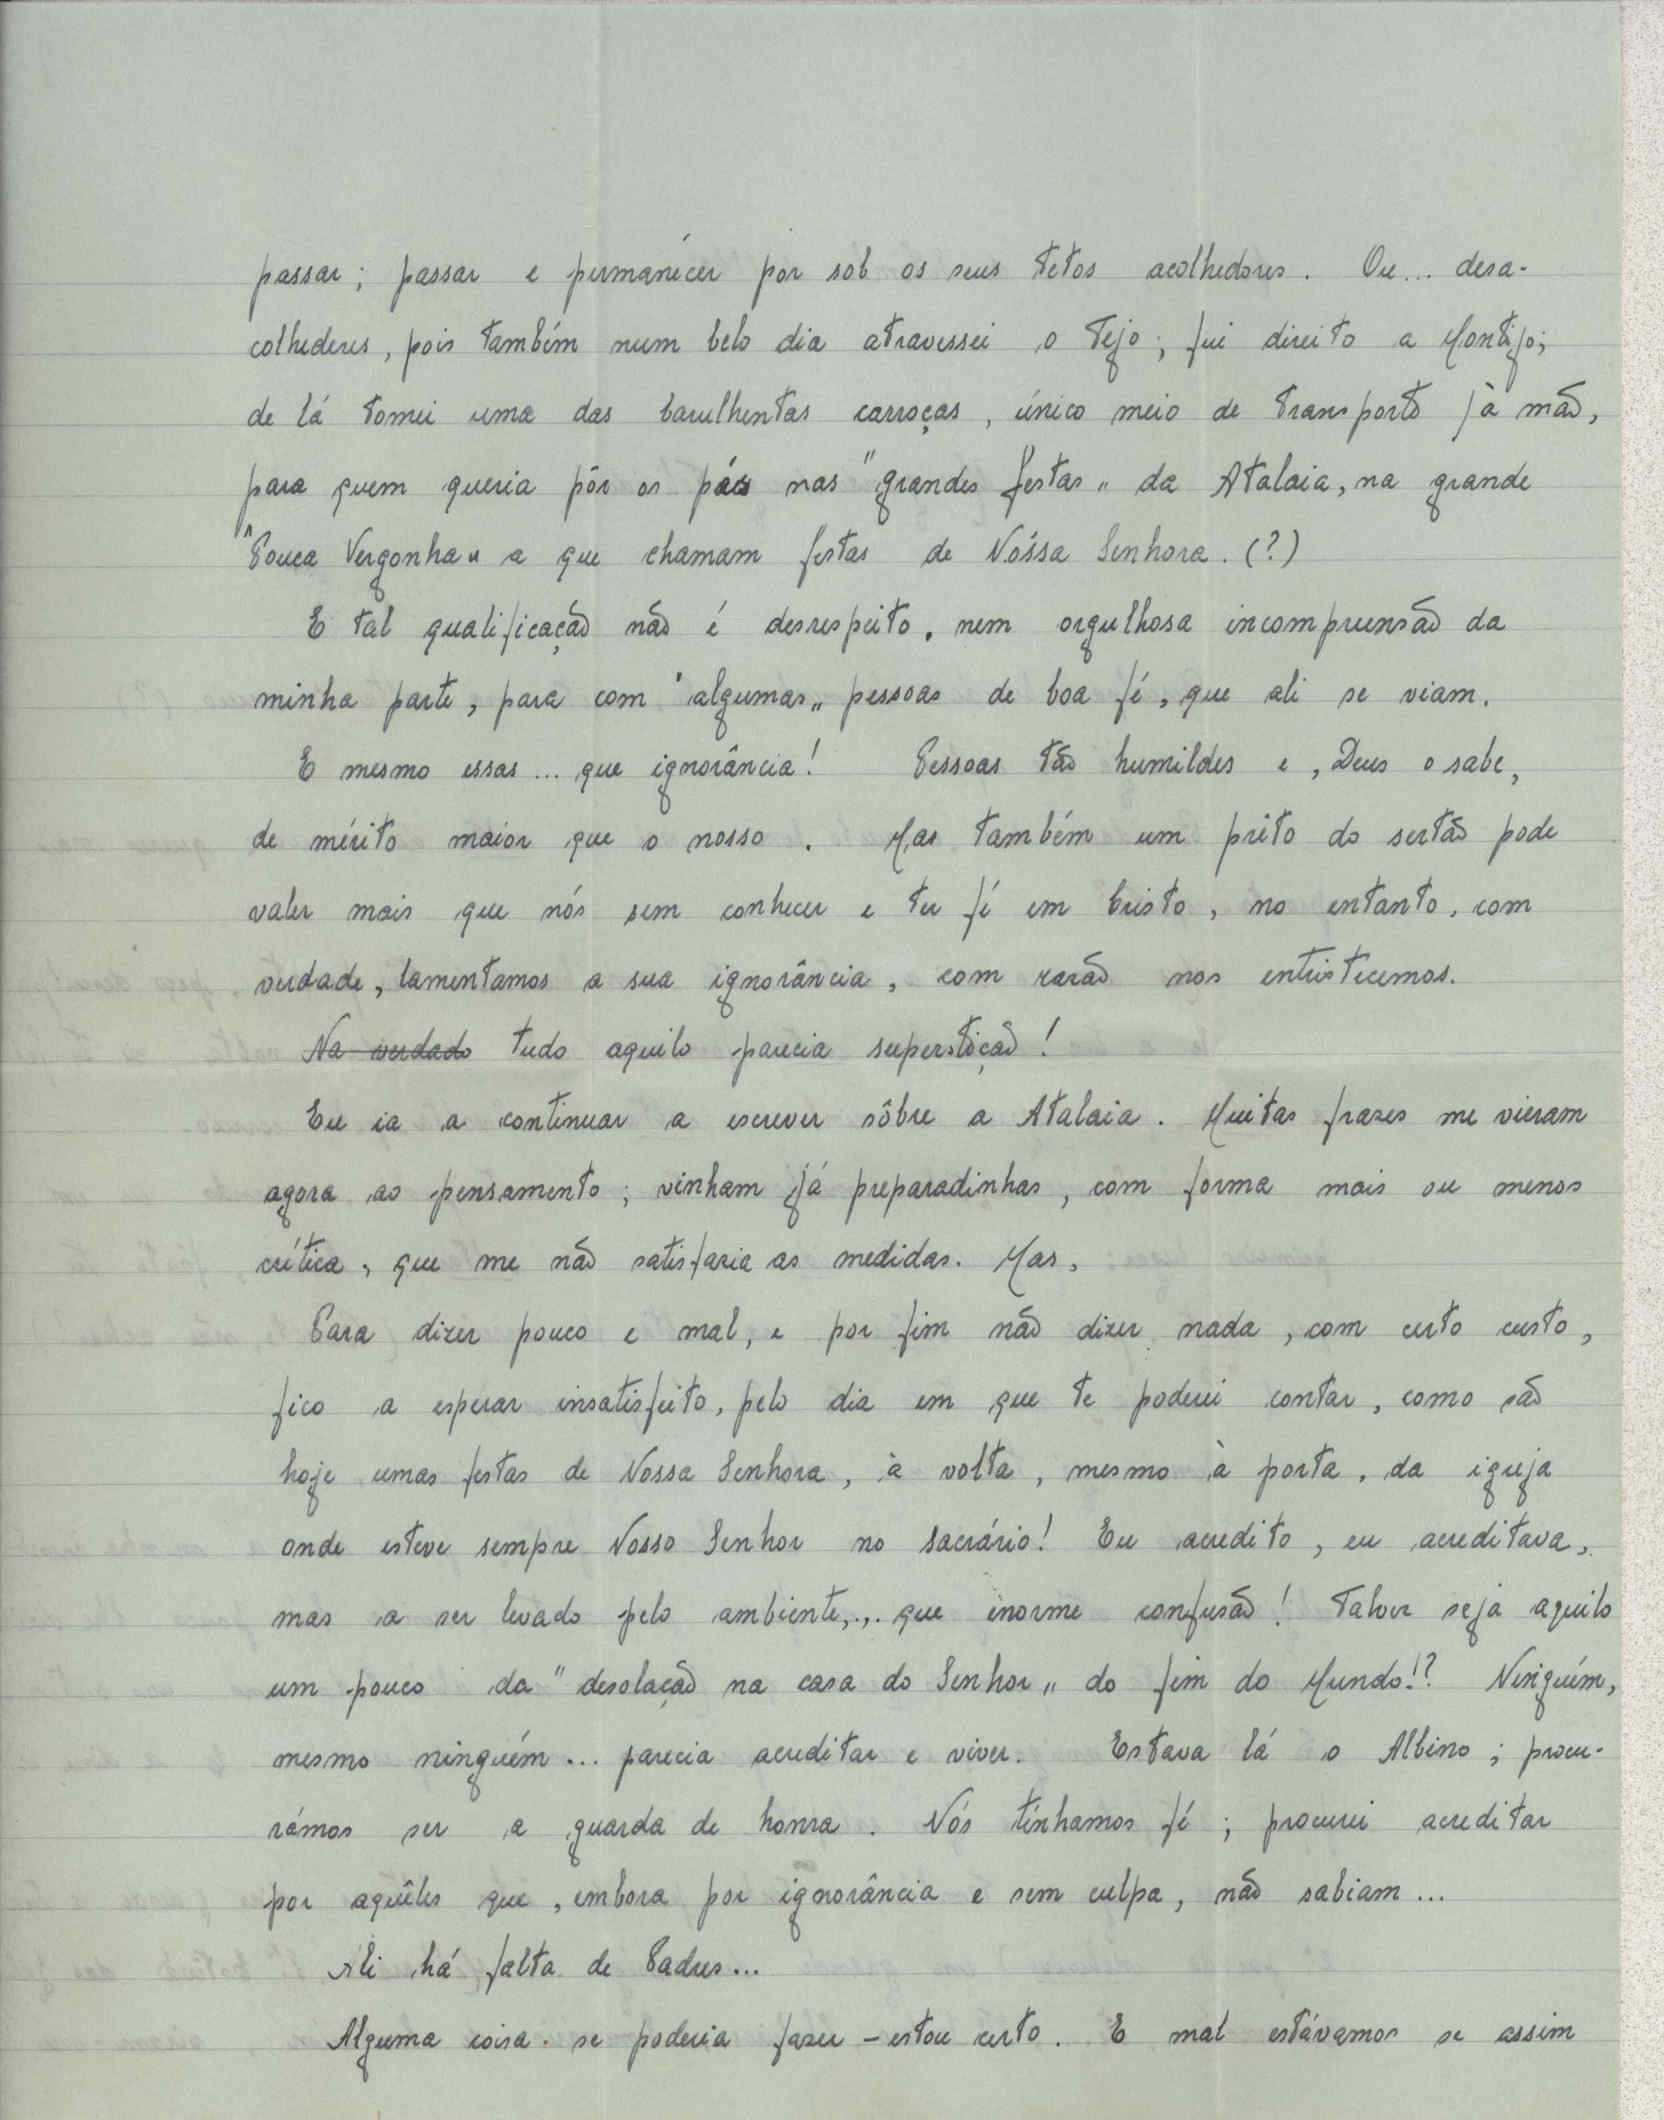 passar; passar e permanécer por sob os seus tetos acolhedores. Ou... desa-
colhederes, pois também num belo dia atravessei o Tejo; fui direito a Montijo;
de lá tomei uma das barulhentas carroças, único meio de transporte à mão,
para quem queria pôr os pés nas "grandes festas" da Atalaia, na grande
"Pouca Vergonha" a que chamam festas de Nossa Senhora. (?)
E tal qualificação não é desrespeito, nem orgulhosa incompreensão da
minha parte, para com "algumas" pessoas de boa fé, que ali se viam.
E mesmo essas... que ignorância! Pessoas tão humildes e, Deus o sabe,
de mérito maior que o nosso. Mas também um prêto do sertão pode
valer mais que nós sem conhecer e ter fé em Cristo, no entanto, com
verdade, lamentamos a sua ignorância, com razão nos entristecemos.
Na verdade tudo aquilo parecia superstição!
Eu ia a continuar a escrever sôbre a Atalaia. Muitas frazes me vieram
agora ao pensamento; vinham já preparadinhas, com forma mais ou menos
crítica, que me não satisfaria as medidas. Mas,
Para dizer pouco e mal, e por fim não dizer nada, com certo custo,
fico a esperar insatisfeito, pelo dia em que te poderei contar, como são
hoje umas festas de Nossa Senhora, à volta, mesmo à porta, da igreja
onde esteve sempre Nosso Senhor no sacrário! Eu acredito, eu acreditava,
mas a ser levado pelo ambiente,... que enorme confusão! Talvez seja aquilo
um pouco da "desolação na casa do Senhor" do fim do Mundo!? Ninguém,
mesmo ninguém... parecia acreditar e viver. Estava lá o Albino; procu-
rámos ser a guarda de honra. Nós tínhamos fé; procurei acreditar
por aquêles que, embora por ignorância e sem culpa, não sabiam...
Ali há falta de Padres...
Alguma coisa se poderia fazer - estou certo. E mal estávamos se assim